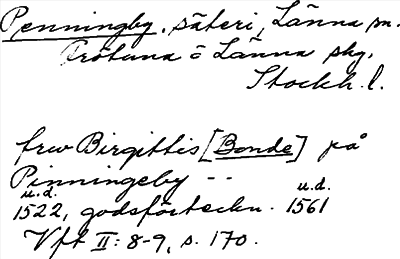 Penningby, säteri, Länna sn.
Frötuna o Länna skg.
Stockh. l.
frw Birgittis [Bonde] på
Pinningeby --
u.d. u.d.
1522, godsförteckn. 1561
Vft II: 8-9, s. 170.